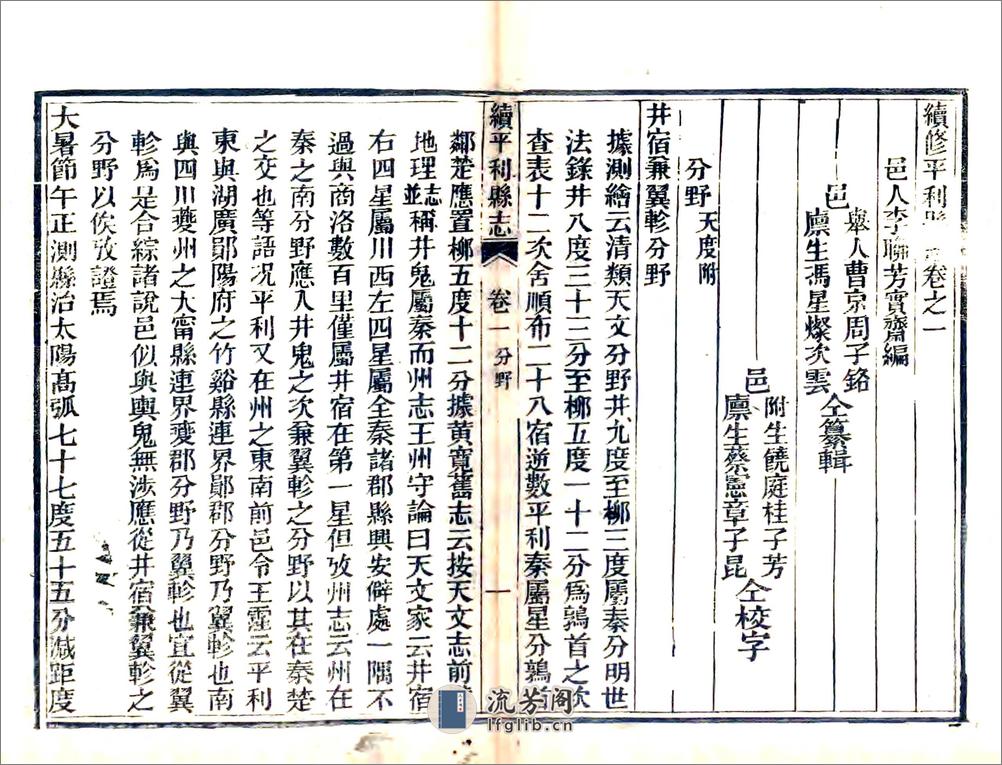 續修平利縣志卷之一
邑人李聯芳實齋編
邑舉人曹宗周子銘
廩生馮星燦次雲仝纂輯
邑附生饒庭桂子芳
廩生蔡憲章子昆仝校字
分野天度附
井宿兼翼軫分野
據測繪云清類天文分野井九度至柳三度屬秦分明世
法錄井八度三十三分至柳五度一十二分爲鶉首之次
查表十二次舍順布二十八宿逆數平利秦屬星分鶉首
續平利縣志 卷一 分野 一
鄰楚應置柳五度十二分據黄寬舊志云按天文志前
地理志並稱井鬼屬秦而州志王州守論曰天文家云井宿
右四星屬川西左四星屬全秦諸郡縣興安僻處一隅不
過與商洛數百里僅屬井宿在第一星但攷州志云州在
秦之南分野應入井鬼之次兼翼軫之分野以其在秦楚
之交也等語况平利又在州之東南前邑令王霔云平利
東與湖廣鄖陽府之竹谿縣連界鄖郡分野乃翼軫也南
與四川夔州之大甯縣連界夔郡分野乃翼軫也宜從翼
軫爲是合綜諸說邑似與輿鬼無涉應從井宿兼翼軫之
分野以俟攷證焉
大暑節午正測縣治太陽高弧七十七度五十五分減距度
流芳阁
lfglib.cn